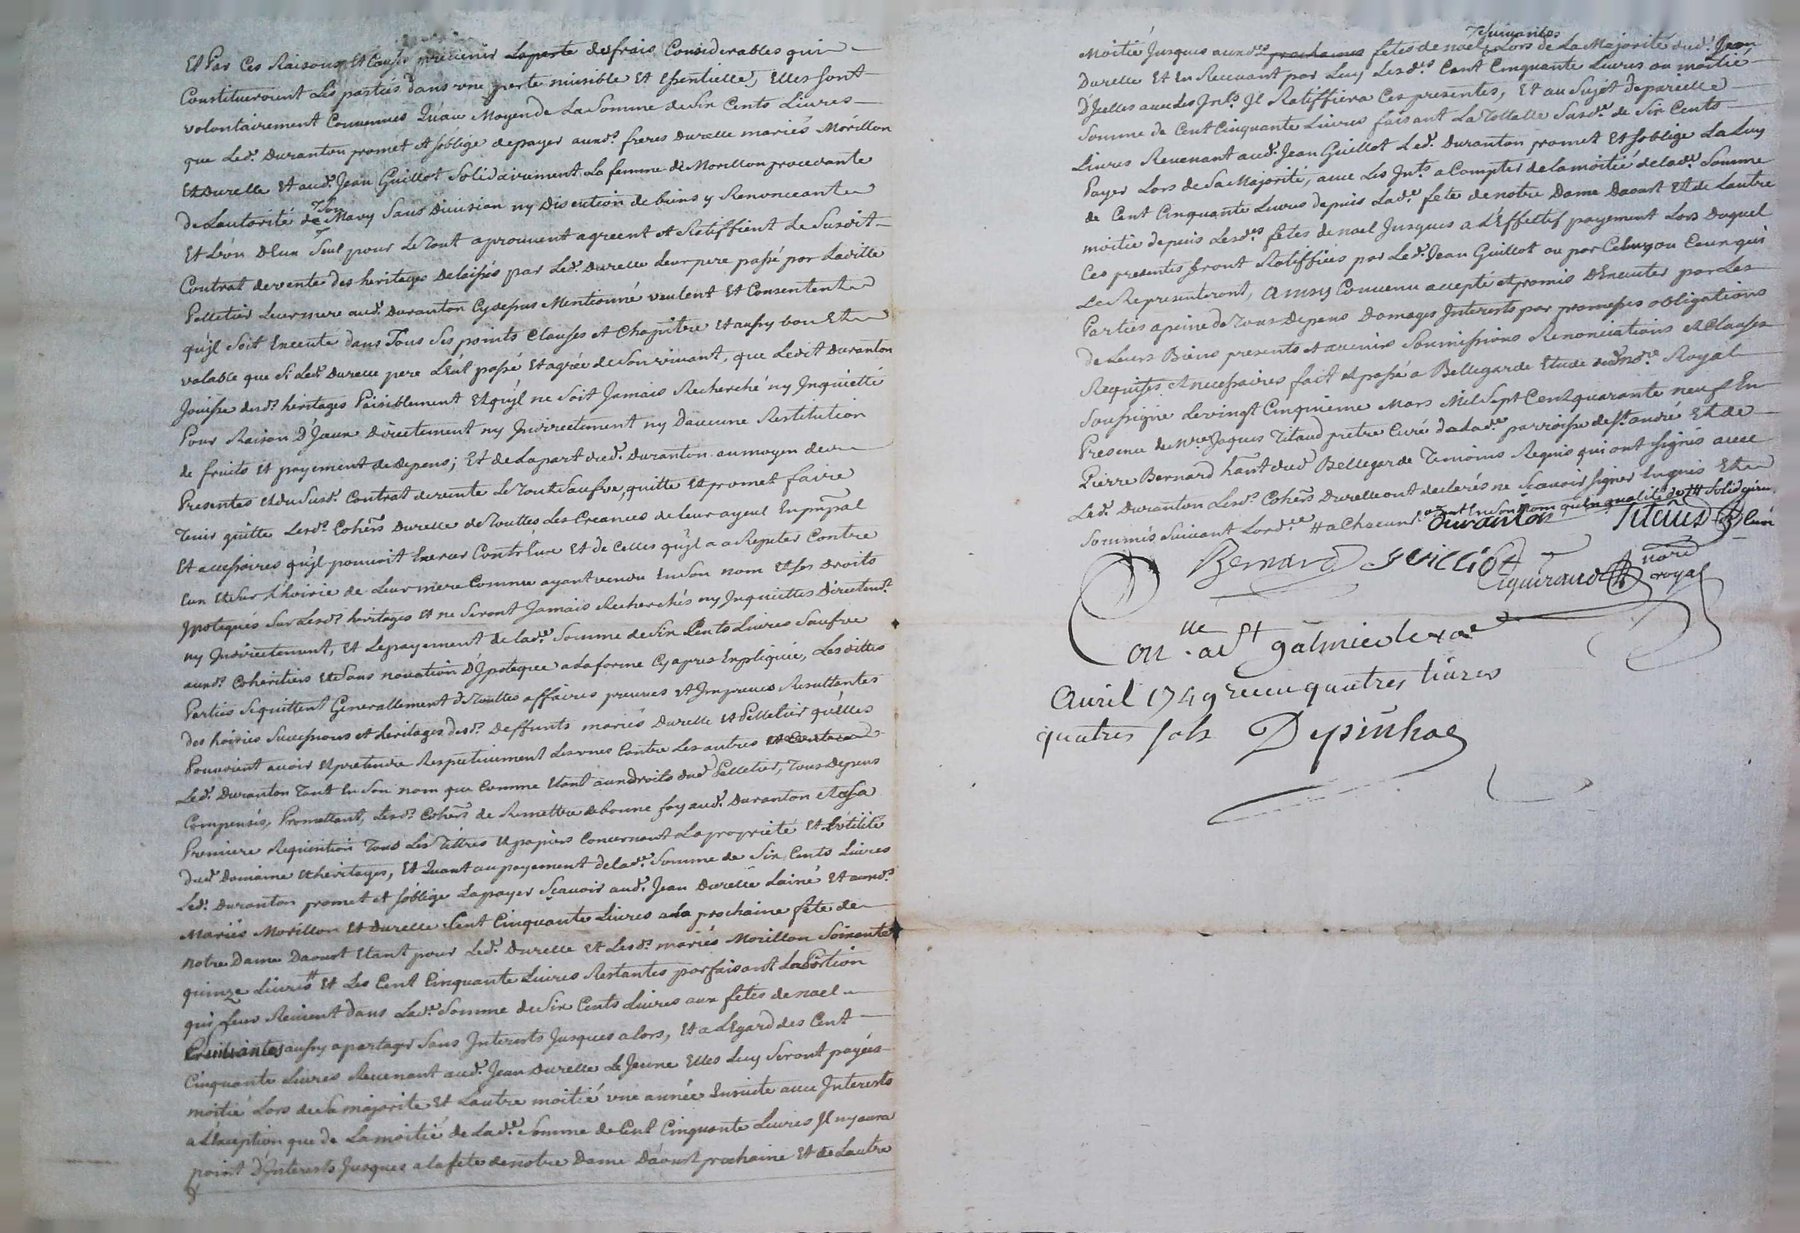 Et Par Ces Raisons Et Causes prevenir La perte des frais Considerables qui
Constitueroient Les parties dans une perte nuisible Et Essentielle, Elles sont
volontairement Convenues Qu'au Moyen de La Somme de Six Cents Livres
que Led. Duranton promet et s'oblige de payer auxds. freres Durelle mariés Morillon
Et Durelle Et aud. Jean Guillot Solidairement La femme de Morillon procedante
de L'autorité de Son Mary Sans Division ny Discution de biens y Renonceant
Et L'un D'Eux Seul pour Le Tout aprouvent agreent et Ratiffient Le Susdit
Contrat de vente des heritages Delaissés par Led. Durelle Leur pere passé par Laditte
Pelletier Leur mere aud. Duranton Cydessus Mentionné veulent Et Consentent
qu'jl Soit Executé dans Tous Ses points Clauses et Chapitre Et aussy bon Et
valable que Si Led. Durelle pere L'eut passé Et agréé de Son vivant, que Ledit Duranton
Jouisse desd. heritages Paisiblement Et qu'jl ne Soit Jamais Recherché ny Jnquietté
Pour Raison D'Jceux Directement ny Jndirectement ny D'aucune Restitution
de fruits Et payement de depens; Et de La part dud. Duranton au moyen des
Presentes Et du Susd. Contrat de vente Le Tout Saufve, quitte Et promet faire
Tenir quitte Lesd. Cohers Durelle de Touttes Les Creances de Leur ayeul En ppal
Et accessoires qu'jl pourroit Exercer Contr'Eux Et de Celles qu'jl a a Repeter Contre
Eux Et Sur L'hoirie de Leur mere Comme ayant vendu En Son nom Et Ses droits
Jpotequés Sur Lesd. heritages Et ne Seront Jamais Recherchés ny Jnquiettés Directemt.
ny Jndirectement, Et Le payement de Lade. Somme de Six Cents Livres Saufve
auxd. Coheritiers Et Sans novation D'Jpoteque a La forme Cy apres Expliquée, Lesdittes
Parties Se quittent Generallement de Touttes affaires preveues et Jmpreveues Resultantes
Des hoiries Successions et heritages desd. Deffunts mariés Durelle Et Pelletier qu'Elles
Pouroient avoir Et pretendre Respectivement Les unes Contre Les autres Et Contre
Led. Duranton Tant En Son nom que Comme Etant aux droits dud. Pelletier, Tous Depens
Compensés, Promettant, Lesd. Cohers. de Remettre de bonne foy aud. Duranton Et a Sa
Premiere Requisition Tous Les Tittres Et papiers Concernant La propriete Et L'utilité
dud. Domaine Et heritages, Et Quant au payement de Lade. Somme de Six Cents Livres
Led. Duranton promet et s'oblige La payer Sçavoir aud. Jean Durelle L'ainé Et auxds.
Mariés Morillon Et Durelle Cent Cinquante Livres a La prochaine fête de
notre Dame Daoust Etant pour Led. Durelle Et Lesd. mariés Morillon Soixante
quinze Livres Et Les Cent Cinquante Livres Restantes parfaisant La Portion
qui Leur Revient Dans Lade. Somme de Six Cents Livres aux fêtes de noel
Ensuivantes aussy a partager Sans Interests Jusques alors, Et a L'Egard des Cent
Cinquante Livres Revenant aud. Jean Durelle Le Jeune Elles Luy Seront payées
moitié Lors de Sa majorite Et L'autre moitié une année Ensuite avec Interests
a L'Exception que de La moitié de Lade. Somme de Cent Cinquante Livres Jl n'y aura
point D'Interests Jusques a la fete de notre Dame D'aoust prochaine Et de L'autre
Moitié Jusques auxds. prochaines fêtes de noel Suivantes Lors de La Majorité dud. Jean
Durelle Et En Recevant par Luy Lesds. Cent Cinquante Livres ou moitié
D'Jcelles avec Les Jnts. Jl Ratiffiera Ces presentes, Et au Sujet de pareille
Somme de Cent Cinquante Livres faisant La Tottalle Susde. de Six Cents
Livres Revenant aud. Jean Guillot Led. Duranton promet Et s'oblige La Luy
Payer Lors de Sa Majorité, avec Les Jnts. a Compter de la moitié de lade. Somme
de Cent Cinquante Livres Depuis Lade. fete de notre Dame Daoust Et de L'autre
moitié depuis Lesds. fêtes de noel Jusques a L'Effectif payement Lors Duquel
Ces presentes Seront Ratiffiées par Led. Jean Guillot ou par Celuy ou Ceux qui
Le Representeront, Ainsy Convenu accepté et promis D'Executer par Les
Parties a peine de Tous Depens Domages Interests par promesses obligations
de Leurs Biens presents et avenir Soumissions Renonciations et Clauses
Requises Et necessaires fait et passé a Bellegarde Etude du nore. Royal
Soussigné Le vingt Cinquieme Mars Mil Sept Cent quarante neuf En
Presence de Mre. Jaques Titaud pretre Curé de lade. parroisse de St. andré Et de
Pierre Bernard hant. dud. Bellegarde Temoins Requis qui ont Signés avec
Led. Duranton Lesd. Cohers. Durelle ont declarés ne Sçavoir Signer Enquis Et
Sommés Suivant L'ord.
Duranton Titaud Curé
Bernard Guilliot
Eiguiraud nore royal
Con.lle a St galmier le
Avril 1749 Receu quatres livres
quatres sols Depinhac